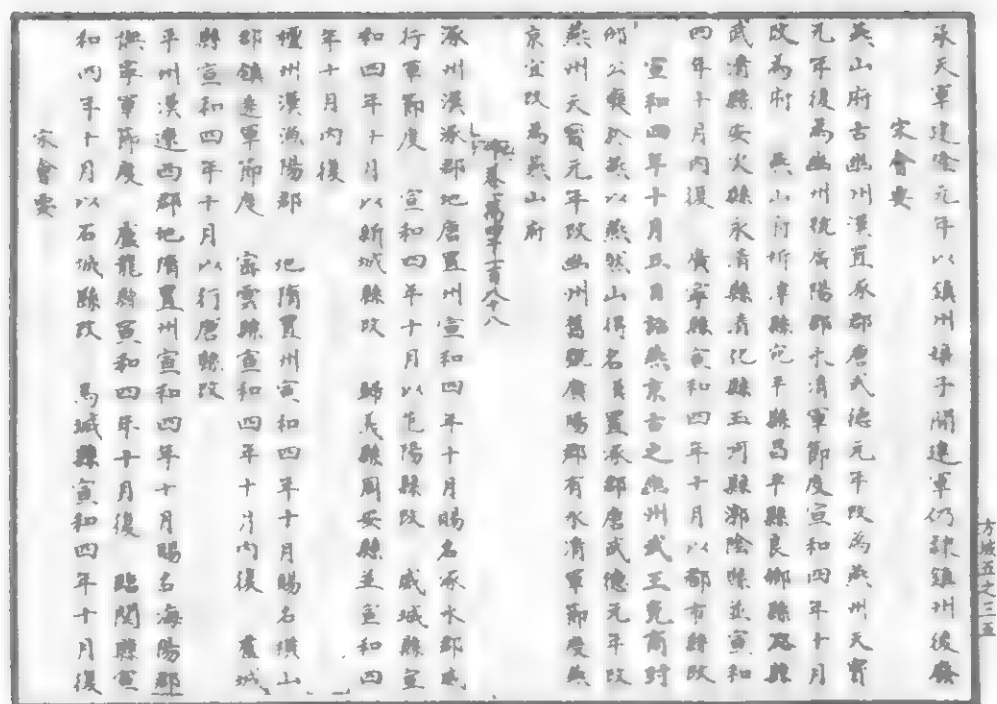 承天軍建隆元年以鎮州娘子關建軍仍隸鎮州後廢
宋會要
燕山府古幽州漢置涿郡唐武德元年改為燕州天寶
元年後為幽州號廣陽郡永清軍節度宣和四年十月
改為府 燕山府析津縣宛平縣昌平縣良鄉縣潞縣
武清縣安次縣永清縣清化縣玉河縣漷陰縣並宣和
四年十月內復 廣寧縣宣和四年十月以都市縣改
宣和四年十月五日詔燕京古之幽州武王克商封
邵公奭於燕以燕然山得名漢置涿郡唐武德元年改
燕州天寶元年改幽州舊號廣陽郡有永清軍節度燕
京宜改為燕山府
卷一萬四千一百八十八
涿州漢涿郡地唐置州宣和四年十月賜名涿水郡威
行軍節度 宣和四年十月以范陽縣改 威城縣宣
和四年十月以新城縣改 歸義縣固安縣並宣和四
年十月內復
檀州漢漁陽郡 地隋置州宣和四年十月賜名橫山
郡鎮遠軍節度 密雲縣宣和四年十月內復 威塞
縣宣和四年十月以行唐縣改
平州漢遼西郡地隋置州宣和四年十月賜名海陽郡
撫寧軍節度 盧龍縣宣和四年十月復 臨關縣宣
和四年十月以石城縣改 馬城縣宣和四年十月復
宋會要
方域五之三五